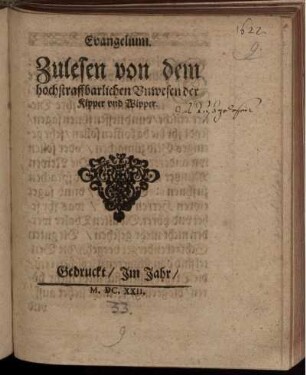 1622.
Evangelium.
Zulesen von dem
hochstraffbarlichen Vnwesen der
Kipper vnd Wipper.
Gedruckt / Im Jahr /
M. DC. XXII.
33.
9